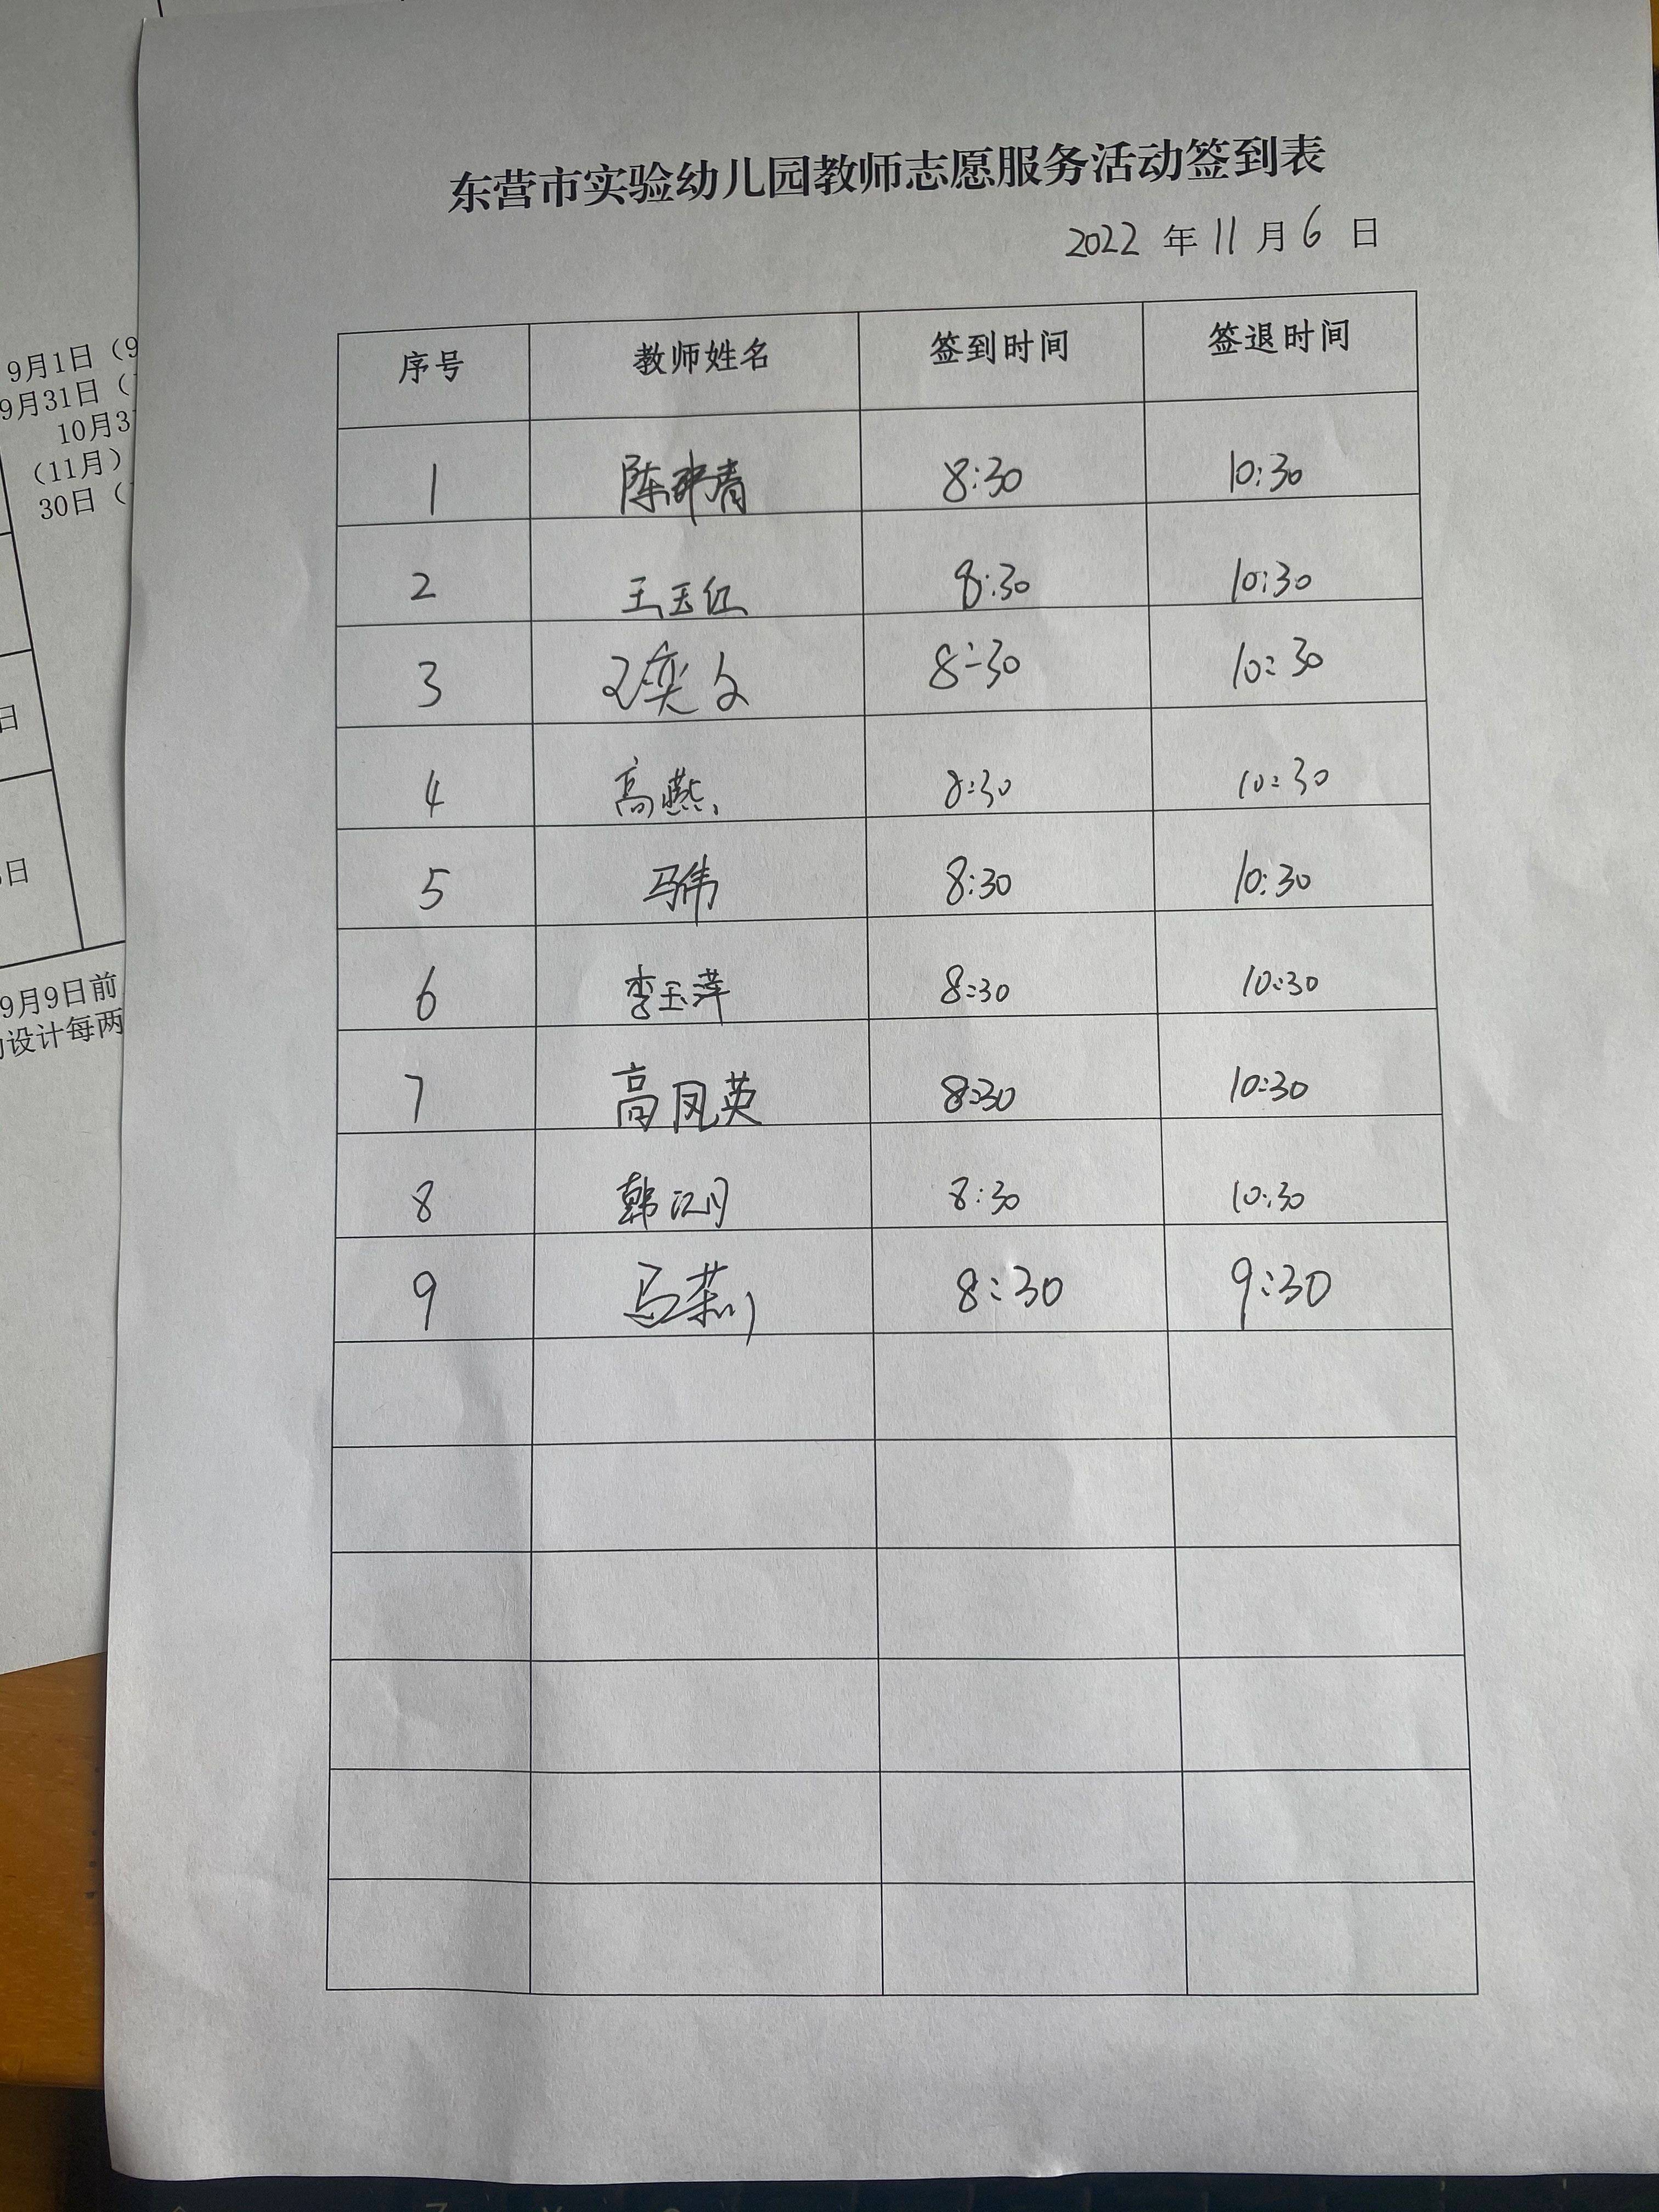 东营市实验幼儿园教师志愿服务活动签到表
2022 年 11 月 6 日
序号 教师姓名 签到时间 签退时间
1 陈 青 8:30 10:30
2 王玉红 8:30 10:30
3 王奕文 8:30 10:30
4 高燕 8:30 10:30
5 马伟 8:30 10:30
6 李玉萍 8:30 10:30
7 高凤英 8:30 10:30
8 韩江月 8:30 10:30
9 马莉 8:30 9:30
9月1日（9
9月31日（
10月3
（11月）
30日（
日
日
9月9日前
设计每两